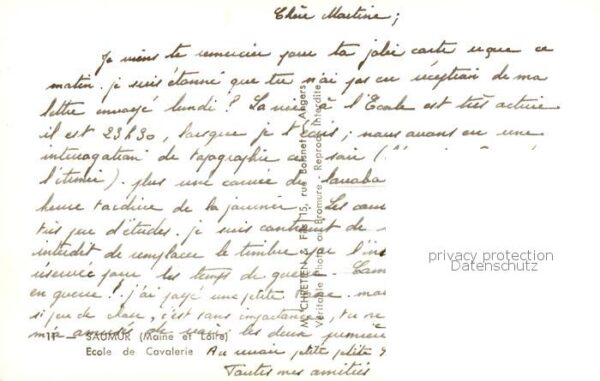 Chère Martine;
Je viens te remercier pour ta jolie carte reçue ce
matin. je suis étonné que tu n'ai pas eu réception de ma
lettre envoyé lundi ? La vie à l'Ecole est très active
il est 23h30, lorsque je t'écris; nous avons eu une
interrogation de topographie ce soir (
). plus une corvée de
heure tardive de la journée. Les
très peu d'études. je suis contraint de
interdit de remplacer le timbre par l'in
réservée pour les temps de guerre.
en guerre ! j'ai payé une petite
si peu de chose, c'est sans importance, tu ne
m'a de les deux
Au petite petite
Toutes mes amitiés
11 — SAUMUR (Maine et Loire)
Ecole de Cavalerie
M. CHRETIEN & Fils, 15, rue Boisnet - Angers
Véritable Photo au Bromure - Reproduction Interdite
privacy protection
Datenschutz